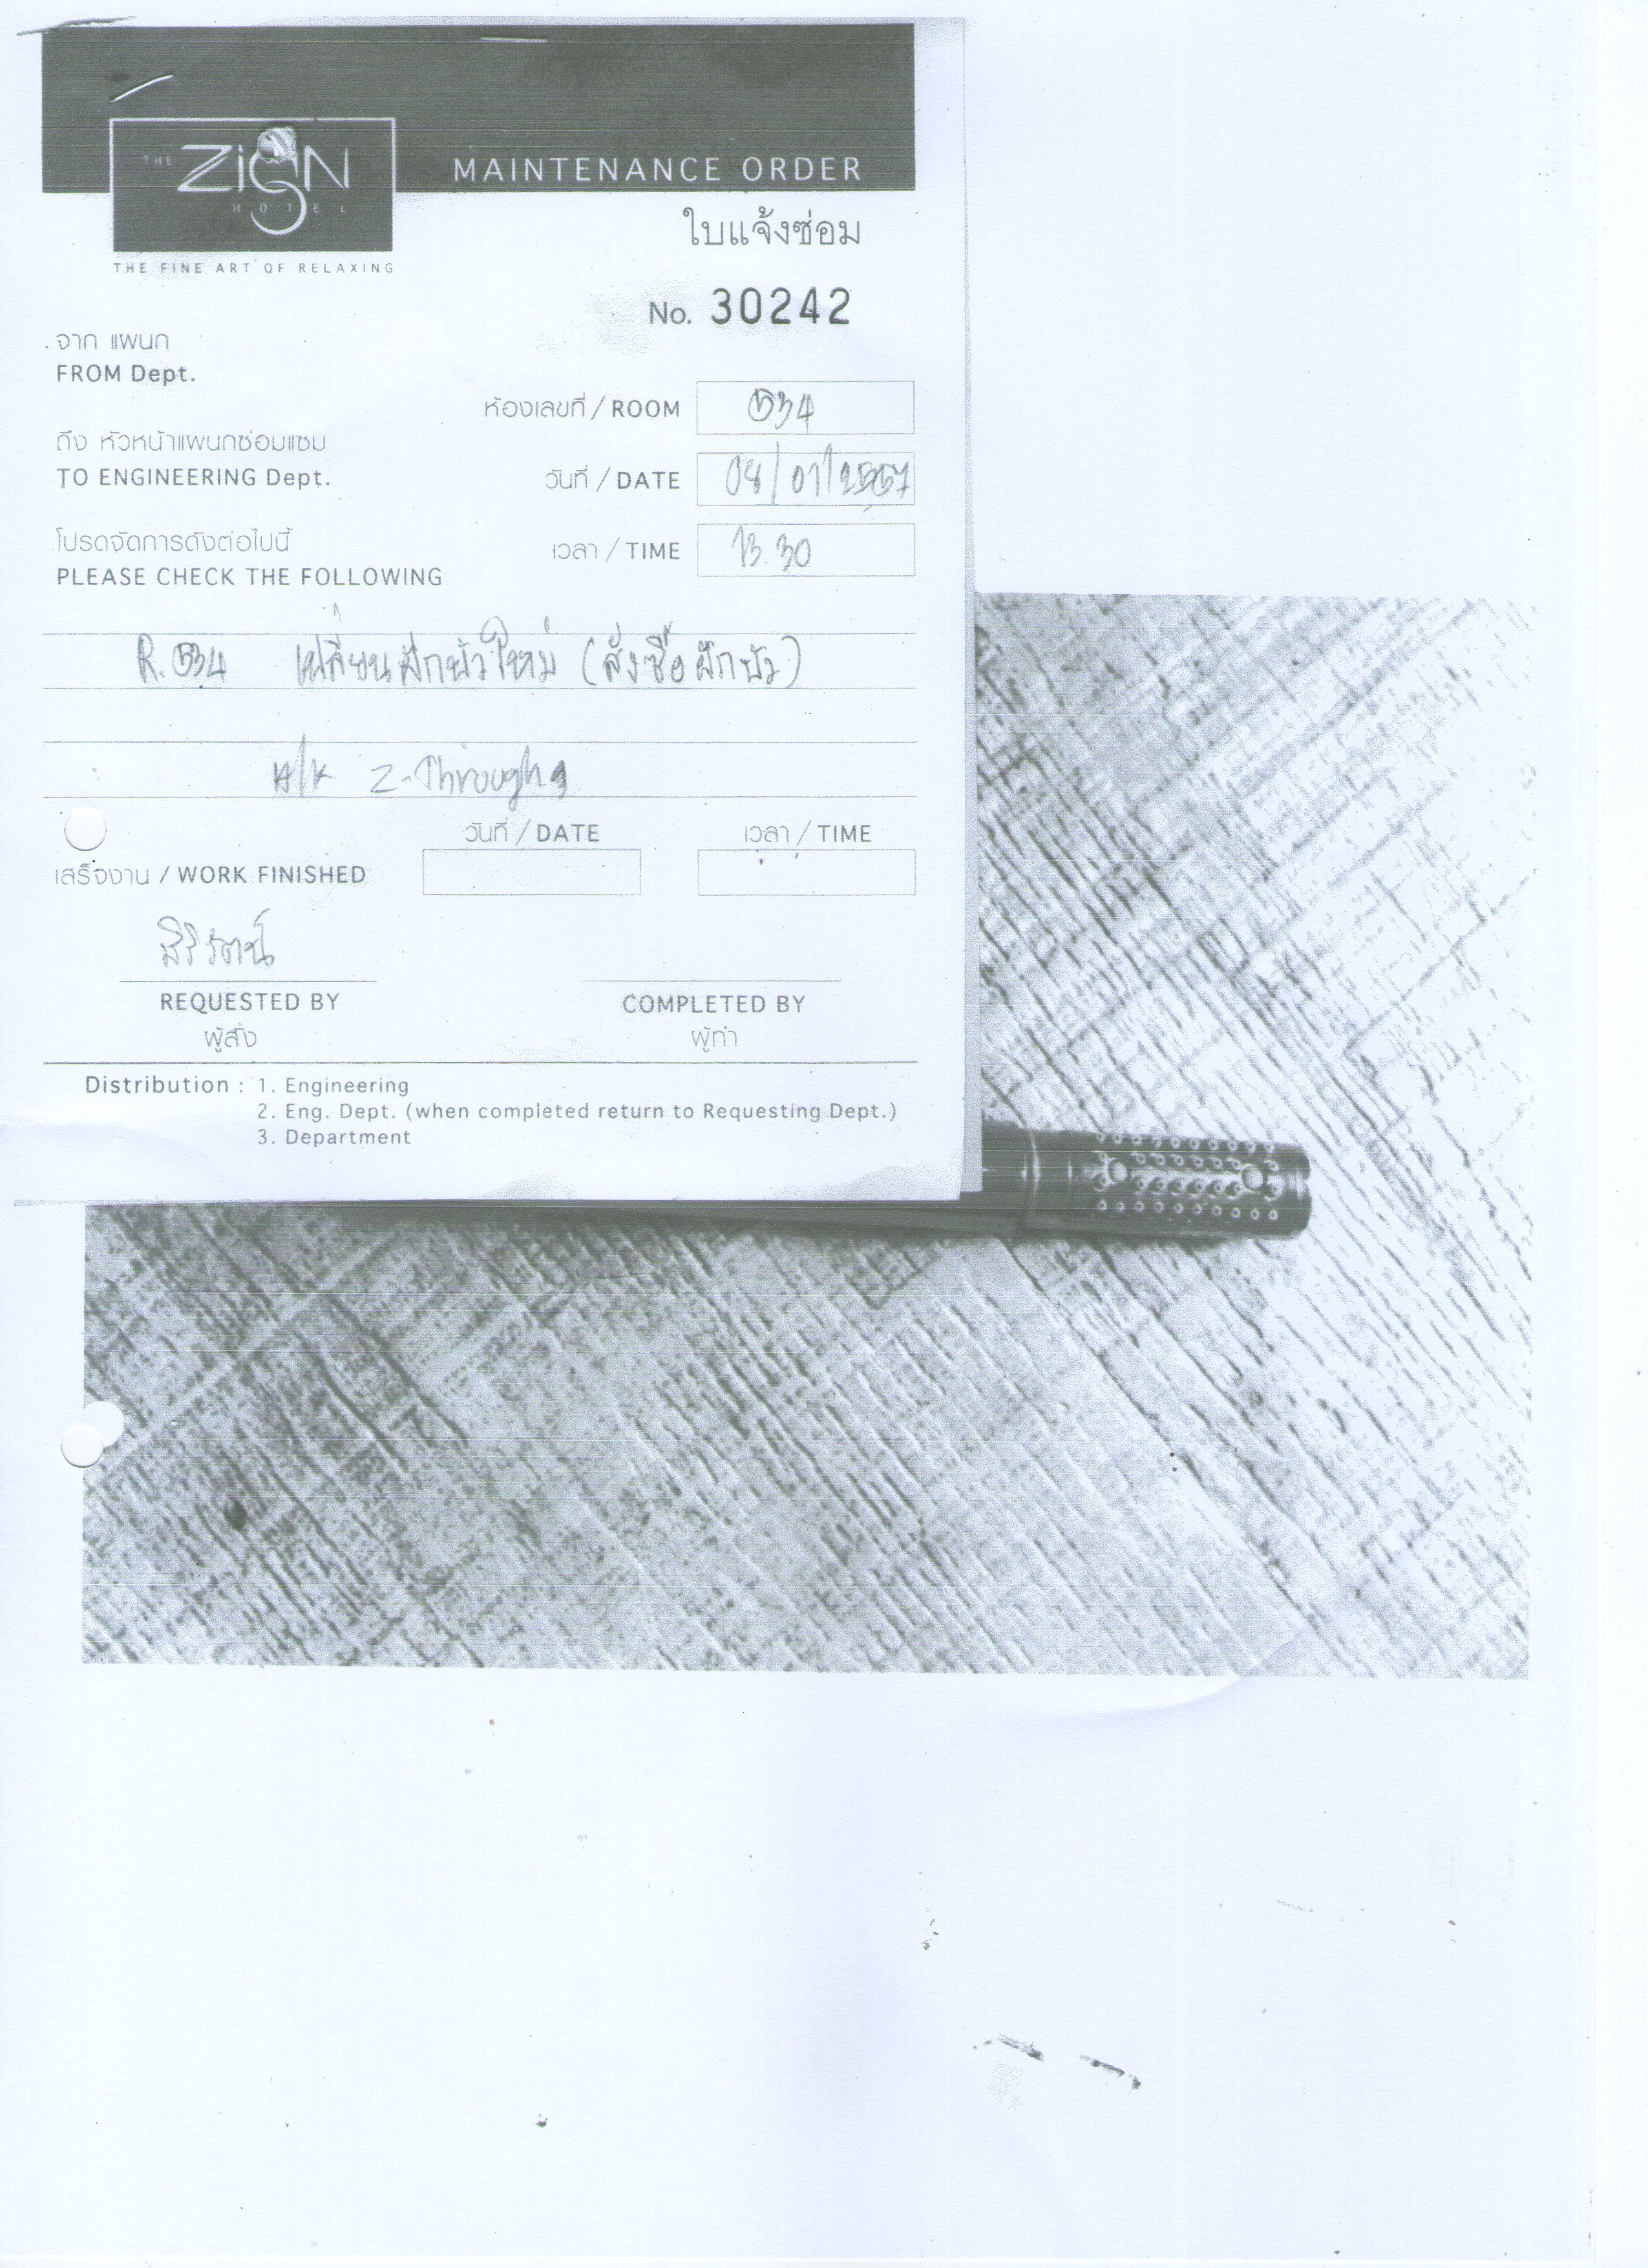 THE ZIGN
HOTEL
MAINTENANCE ORDER
THE FINE ART OF RELAXING
ใบแจ้งซ่อม
No. 30242
จาก แผนก
FROM Dept.
ห้องเลขที่ / ROOM 534
ถึง หัวหน้าแผนกซ่อมแซม
TO ENGINEERING Dept.
วันที่ / DATE 08/01/2567
โปรดจัดการดังต่อไปนี้
PLEASE CHECK THE FOLLOWING
เวลา / TIME 13.30
R.534 เปลี่ยนฝักบัวใหม่ (สั่งซื้อฝักบัว)
Z-Through
วันที่ / DATE เวลา / TIME
เสร็จงาน / WORK FINISHED
สิริรัตน์
REQUESTED BY COMPLETED BY
ผู้สั่ง ผู้ทำ
Distribution : 1. Engineering
2. Eng. Dept. (when completed return to Requesting Dept.)
3. Department